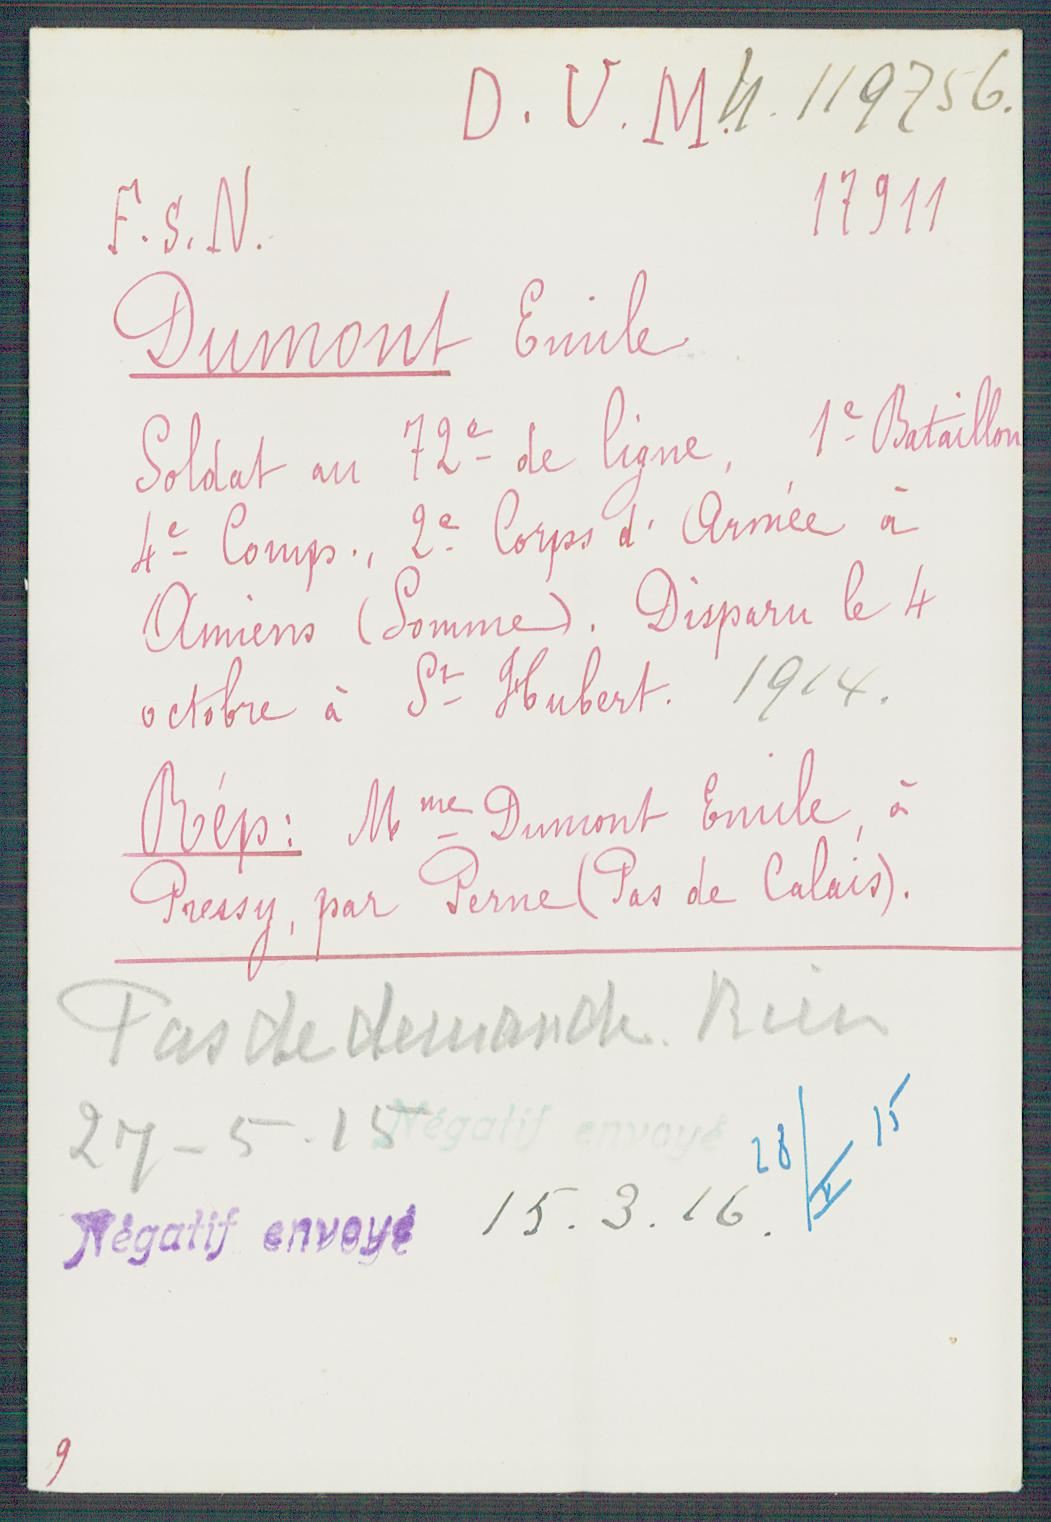 D. V. M. H. 119756.
F. S. N. 17911
Dumont Emile
Soldat au 72e de ligne, 1e Bataillon
4e Comp., 2e Corps d'Armée à
Amiens (Somme). Disparu le 4
octobre à St Hubert. 1914.
Rép: Mme Dumont Emile, à
Pressy, par Perne (Pas de Calais).
Pas de demande. Rien
27-5-15 Négatif envoyé 28/V 15
Négatif envoyé 15.3.16.
9